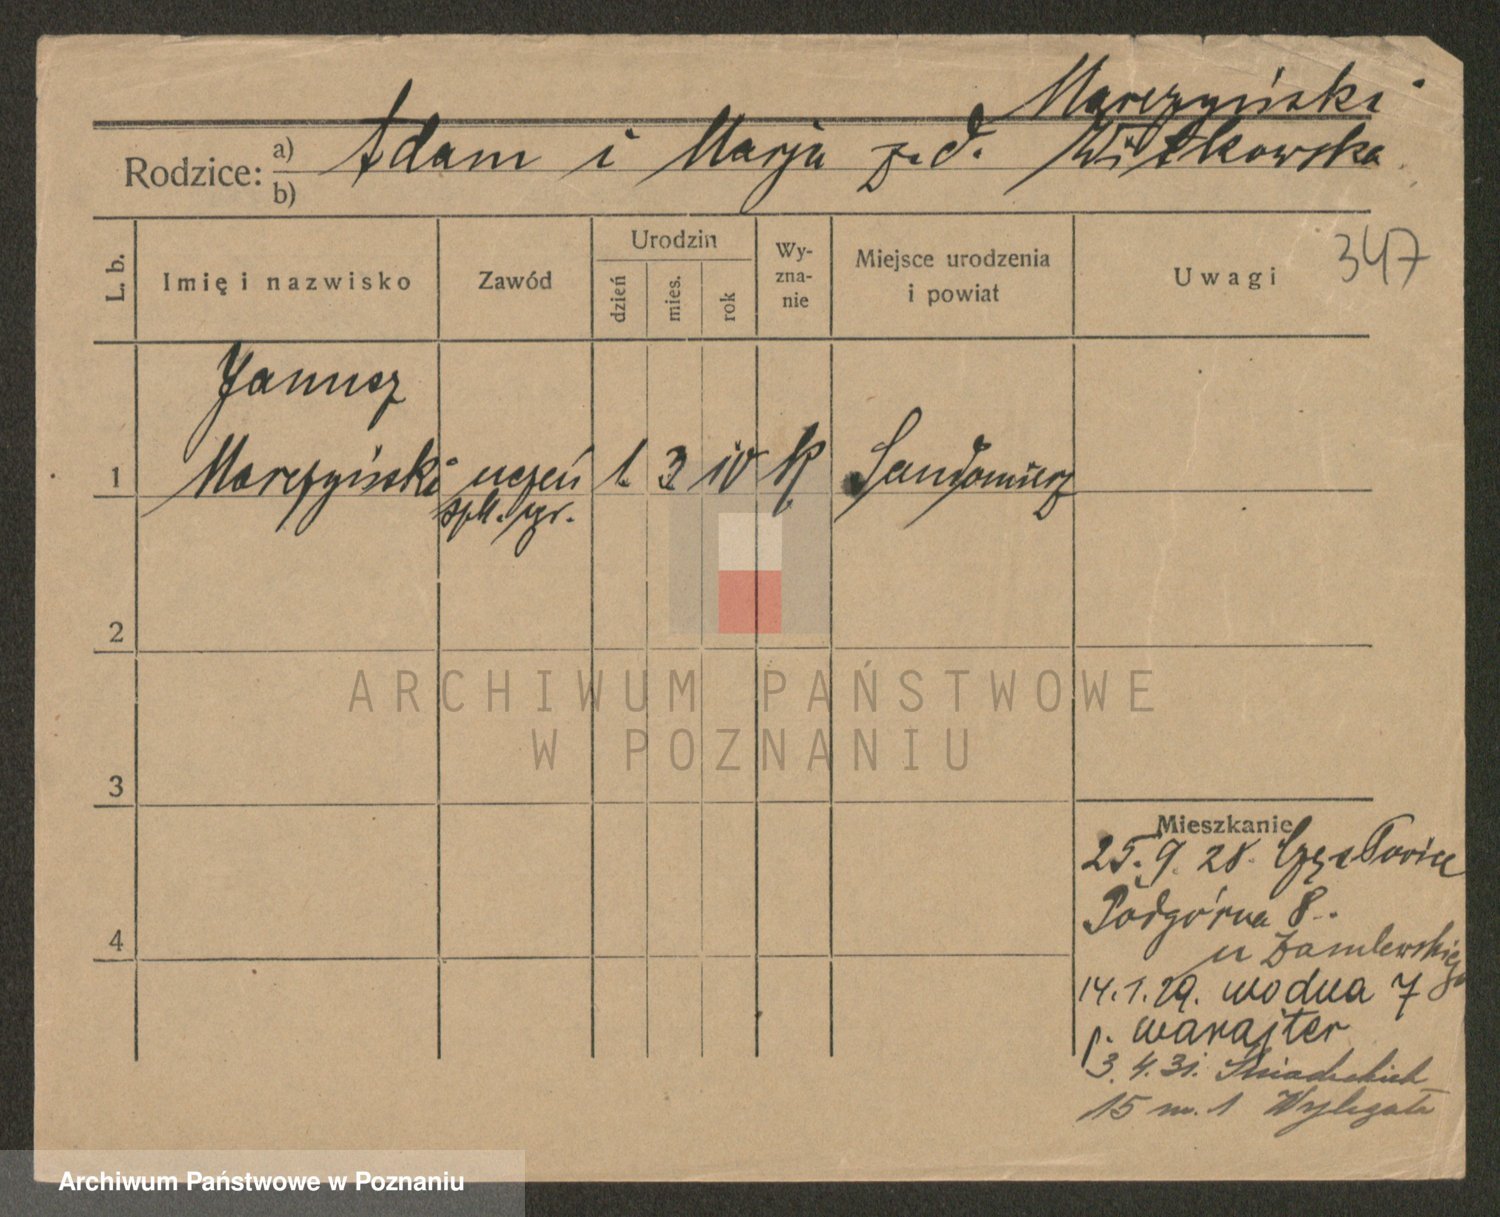 Marczyński
Rodzice: a) Adam i Marja z d. Witkowska
b)
L. b.
Imię i nazwisko
Zawód
Urodzin
dzień
mies.
rok
Wy-
zna-
nie
Miejsce urodzenia
i powiat
Uwagi
347
Janusz
1 Marczyński uczeń 1 3 10 K Sandomierz
szk. gr.
2
ARCHIWUM PAŃSTWOWE
W POZNANIU
3
Mieszkanie
25. 9. 28. Częstowice
Podgórna 8.
4
u
14. 1. 29. wodna 7
p. warajter
3. 4. 31. Śniadeckich
15 m. 1 Wylegała
Archiwum Państwowe w Poznaniu